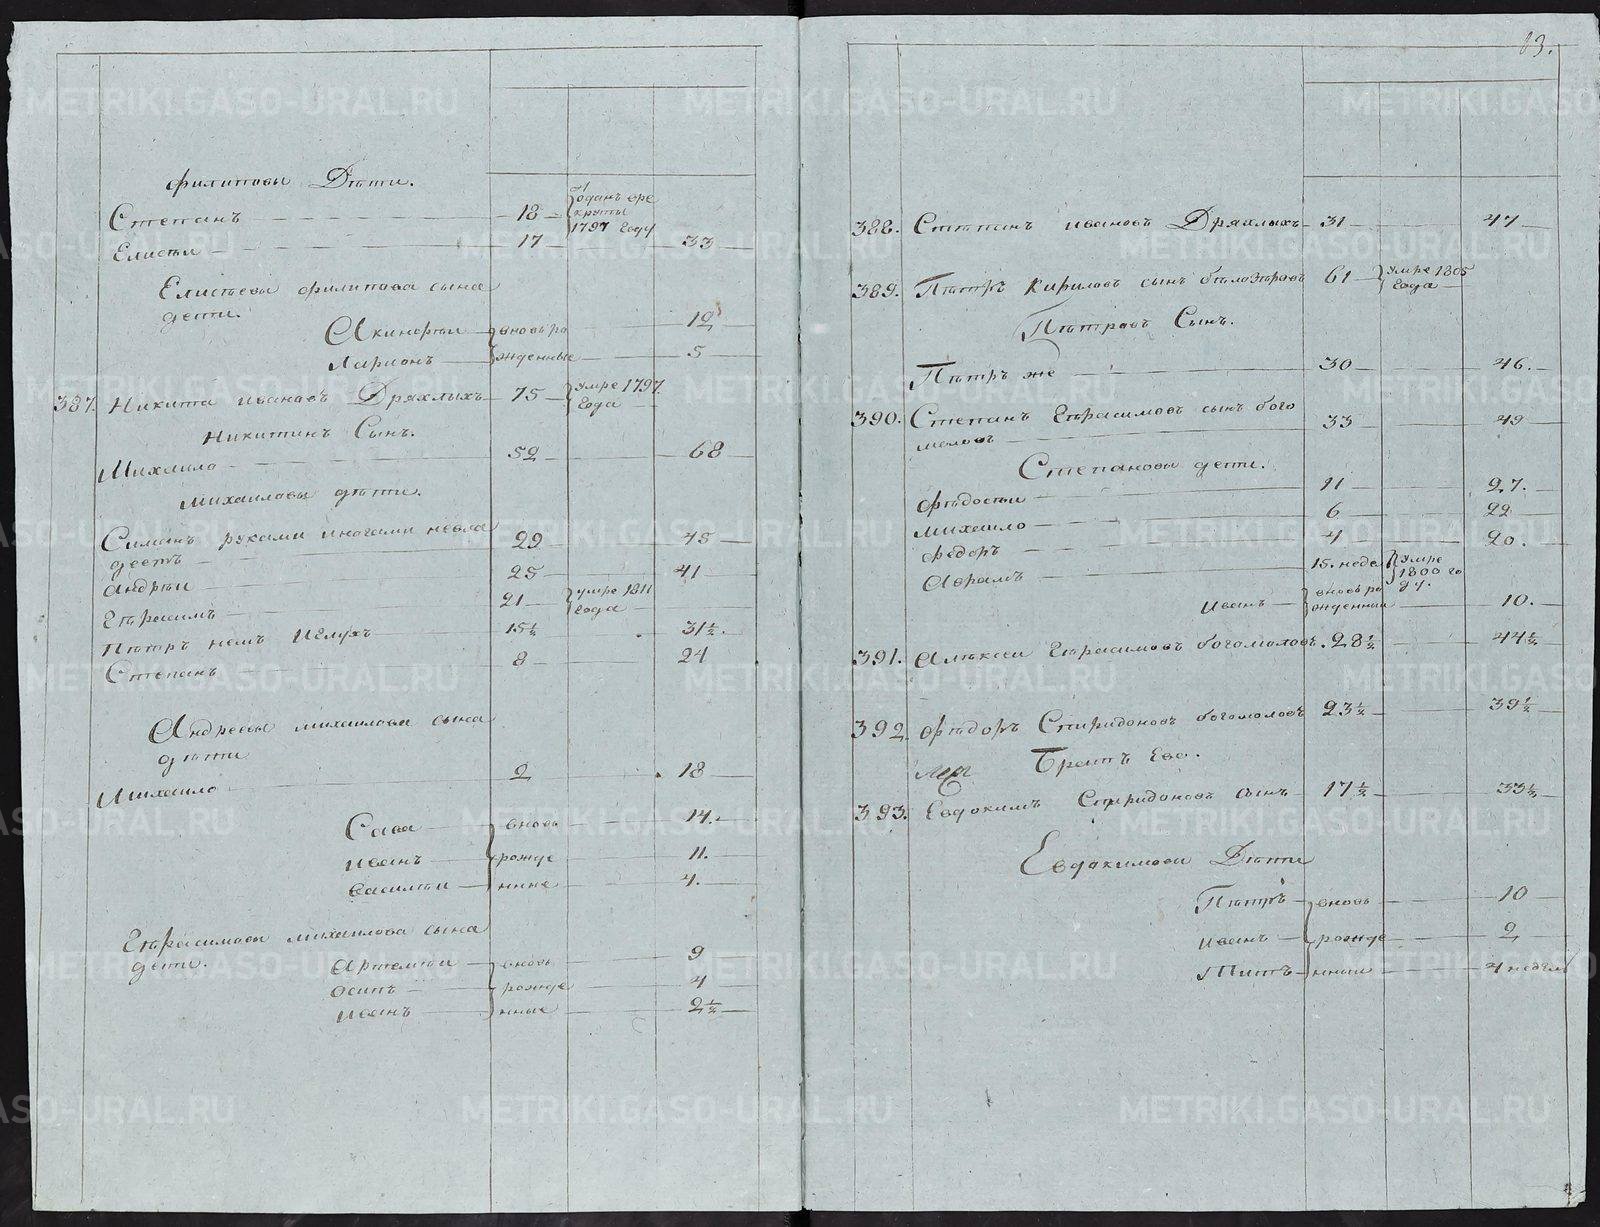 филиповы Дѣти.
Степанъ 18 отданъ вре
круты
1797 году
Елисѣи 17 33
Елисѣевы филипова сына
дети.
Акинфѣи вновь ро 12
Ларионъ жденные 5
387. Никита ивановъ Дряхлыхъ 75 умре 1797
года
Никитинъ Сынъ.
Михаило 52 68
михаиловы дѣти.
Симанъ руками иногами невла
деетъ 29 45
андрѣи 25 41
Гѣрасимъ 21 умре 1811
года
Пѣтръ немъ Иглухъ 15½ 31½.
Степанъ 8 24
Андреевы михаилова сына
дѣти
Михаило 2 18
Сава вновь 14.
иванъ рожде 11.
василѣи нные 4.
Гѣрасимовы михаилова сына
дети.
Артемѣи вновь 9
осипъ рожде 4
иванъ нные 2½
83.
388. Степанъ ивановъ Дряхлыхъ 31 47
389. Пѣтръ Кириловъ сынъ бѣлозѣровъ 61 умре 1805
года
Пѣтровъ Сынъ.
Пѣтръ же 30 46.
390. Степанъ Гѣрасимовъ сынъ бого
моловъ 33 49
Степановы дети.
Фѣдосѣи 11 27.
михаило 6 22
федоръ 4 20.
Аврамъ 15. неде умре
1800 го
ду.
иванъ вновь ро
жденныи 10.
391. Алѣксеи Гѣрасимовъ богомоловъ. 28½ 44½
392. Фѣдоръ Спиридоновъ богомоловъ 23½ 39½
Братъ Ево.
393. Евдокимъ Спиридоновъ сынъ 17½ 33½
Евдокимовы Дѣти
Пѣтръ вновь 10
иванъ рожде 2
Титъ нныи 4 недел
METRIKI.GASO-URAL.RU